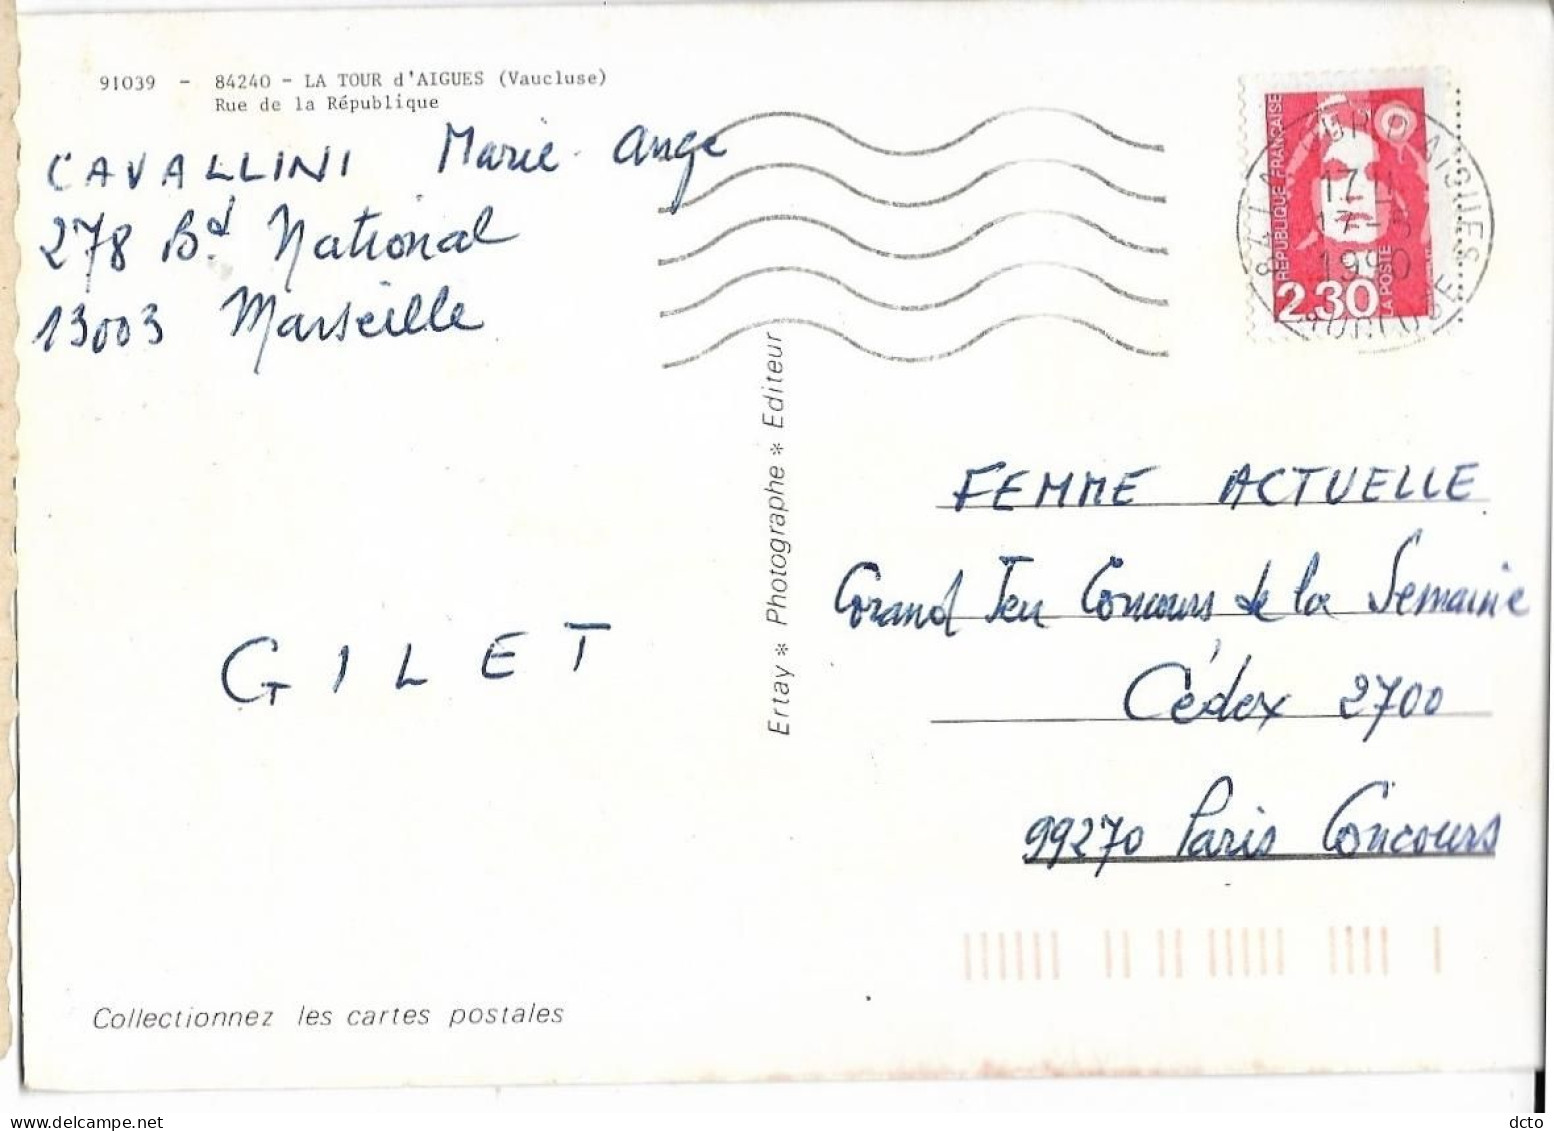 91039 - 84240 - LA TOUR d'AIGUES (Vaucluse)
Rue de la République
CAVALLINI Marie Ange
278 Bd National
13003 Marseille
GILET
Collectionnez les cartes postales
Ertay * Photographe * Editeur
RÉPUBLIQUE FRANÇAISE
2,30
LA POSTE
1990
FEMME ACTUELLE
Grand Jeu Concours de la Semaine
Cédex 2700
99270 Paris Concours
dcto